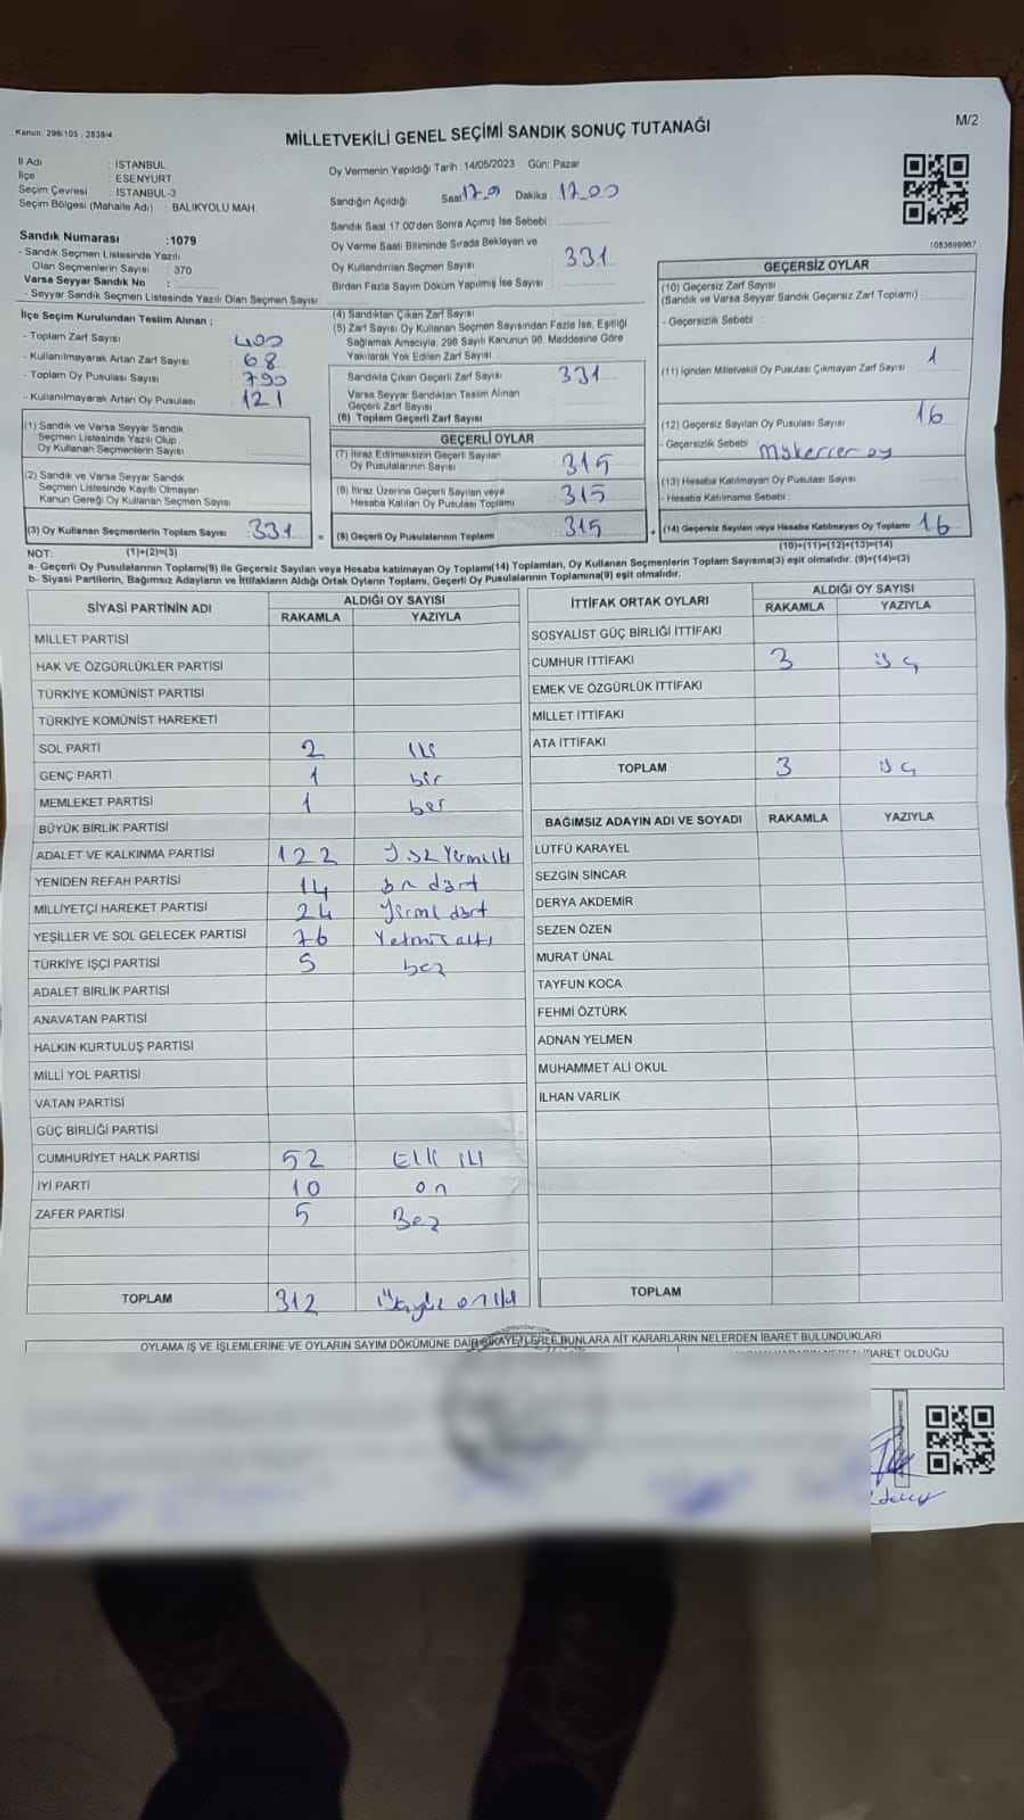 Kanun: 298/105 , 2839/4
MİLLETVEKİLİ GENEL SEÇİMİ SANDIK SONUÇ TUTANAĞI
M/2
İl Adı : İSTANBUL
İlçe : ESENYURT
Seçim Çevresi : İSTANBUL-3
Seçim Bölgesi (Mahalle Adı) : BALIKYOLU MAH.
Oy Vermenin Yapıldığı Tarih : 14/05/2023 Gün: Pazar
Sandığın Açıldığı Saat Dakika 17.00
Sandık Saat 17.00'den Sonra Açılmış İse Sebebi
Oy Verme Saati Bitiminde Sırada Bekleyen ve
Oy Kullandırılan Seçmen Sayısı 331
Birden Fazla Sayım Döküm Yapılmış İse Sayısı
Sandık Numarası :1079
- Sandık Seçmen Listesinde Yazılı
Olan Seçmenlerin Sayısı : 370
Varsa Seyyar Sandık No :
- Seyyar Sandık Seçmen Listesinde Yazılı Olan Seçmen Sayısı
İlçe Seçim Kurulundan Teslim Alınan ;
- Toplam Zarf Sayısı 400
- Kullanılmayarak Artan Zarf Sayısı 68
- Toplam Oy Pusulası Sayısı 790
- Kullanılmayarak Artan Oy Pusulası 121
(1) Sandık ve Varsa Seyyar Sandık
Seçmen Listesinde Yazılı Olup
Oy Kullanan Seçmenlerin Sayısı
(2) Sandık ve Varsa Seyyar Sandık
Seçmen Listesinde Kayıtlı Olmayan
Kanun Gereği Oy Kullanan Seçmen Sayısı
(3) Oy Kullanan Seçmenlerin Toplam Sayısı 331
(4) Sandıktan Çıkan Zarf Sayısı
(5) Zarf Sayısı Oy Kullanan Seçmen Sayısından Fazla İse, Eşitliği
Sağlamak Amacıyla, 298 Sayılı Kanunun 98. Maddesine Göre
Yakılarak Yok Edilen Zarf Sayısı
Sandıkta Çıkan Geçerli Zarf Sayısı 331
Varsa Seyyar Sandıktan Teslim Alınan
Geçerli Zarf Sayısı
(6) Toplam Geçerli Zarf Sayısı
GEÇERLİ OYLAR
(7) İtiraz Edilmeksizin Geçerli Sayılan
Oy Pusulalarının Sayısı 315
(8) İtiraz Üzerine Geçerli Sayılan veya
Hesaba Katılan Oy Pusulası Toplamı 315
(9) Geçerli Oy Pusulalarının Toplamı 315
1083699907
GEÇERSİZ OYLAR
(10) Geçersiz Zarf Sayısı
(Sandık ve Varsa Seyyar Sandık Geçersiz Zarf Toplamı)
- Geçersizlik Sebebi :
(11) İçinden Milletvekili Oy Pusulası Çıkmayan Zarf Sayısı 1
(12) Geçersiz Sayılan Oy Pusulası Sayısı 16
- Geçersizlik Sebebi Mükerrer oy
(13) Hesaba Katılmayan Oy Pusulası Sayısı
- Hesaba Katılmama Sebebi :
(14) Geçersiz Sayılan veya Hesaba Katılmayan Oy Toplamı 16
NOT: (1)+(2)=(3) (10)+(11)+(12)+(13)=(14)
a- Geçerli Oy Pusulalarının Toplamı(9) ile Geçersiz Sayılan veya Hesaba katılmayan Oy Toplamı(14) Toplamları, Oy Kullanan Seçmenlerin Toplam Sayısına(3) eşit olmalıdır. (9)+(14)=(3)
b- Siyasi Partilerin, Bağımsız Adayların ve İttifakların Aldığı Ortak Oyların Toplamı, Geçerli Oy Pusulalarının Toplamına(9) eşit olmalıdır.
SİYASİ PARTİNİN ADI ALDIĞI OY SAYISI
RAKAMLA YAZIYLA
MİLLET PARTİSİ
HAK VE ÖZGÜRLÜKLER PARTİSİ
TÜRKİYE KOMÜNİST PARTİSİ
TÜRKİYE KOMÜNİST HAREKETİ
SOL PARTİ 2 iki
GENÇ PARTİ 1 bir
MEMLEKET PARTİSİ 1 ber
BÜYÜK BİRLİK PARTİSİ
ADALET VE KALKINMA PARTİSİ 122
YENİDEN REFAH PARTİSİ 14 on dört
MİLLİYETÇİ HAREKET PARTİSİ 24 Yirmi dört
YEŞİLLER VE SOL GELECEK PARTİSİ 76 Yetmiş altı
TÜRKİYE İŞÇİ PARTİSİ 5 beş
ADALET BİRLİK PARTİSİ
ANAVATAN PARTİSİ
HALKIN KURTULUŞ PARTİSİ
MİLLİ YOL PARTİSİ
VATAN PARTİSİ
GÜÇ BİRLİĞİ PARTİSİ
CUMHURİYET HALK PARTİSİ 52 Elli iki
İYİ PARTİ 10 on
ZAFER PARTİSİ 5 Beş
TOPLAM 312 Üçyüz oniki
İTTİFAK ORTAK OYLARI ALDIĞI OY SAYISI
RAKAMLA YAZIYLA
SOSYALİST GÜÇ BİRLİĞİ İTTİFAKI
CUMHUR İTTİFAKI 3 üç
EMEK VE ÖZGÜRLÜK İTTİFAKI
MİLLET İTTİFAKI
ATA İTTİFAKI
TOPLAM 3 üç
BAĞIMSIZ ADAYIN ADI VE SOYADI RAKAMLA YAZIYLA
LÜTFÜ KARAYEL
SEZGİN SİNCAR
DERYA AKDEMİR
SEZEN ÖZEN
MURAT ÜNAL
TAYFUN KOCA
FEHMİ ÖZTÜRK
ADNAN YELMEN
MUHAMMET ALİ OKUL
İLHAN VARLIK
TOPLAM
OYLAMA İŞ VE İŞLEMLERİNE VE OYLARIN SAYIM DÖKÜMÜNE DAİR ŞİKAYETLERLE BUNLARA AİT KARARLARIN NELERDEN İBARET BULUNDUKLARI
İBARET OLDUĞU